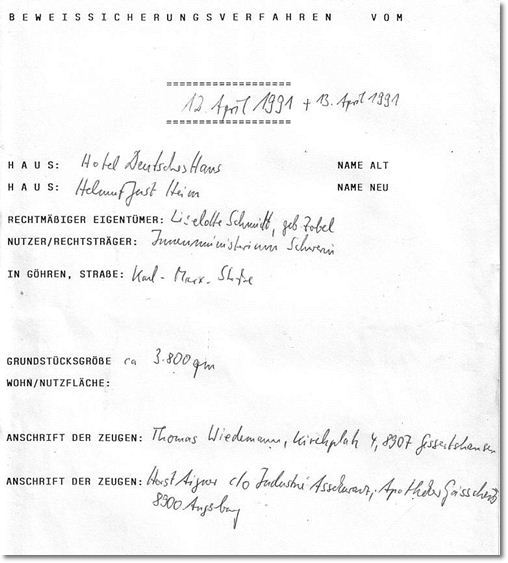 BEWEISSICHERUNGSVERFAHREN VOM
===================
12 April 1991 + 13. April 1991
===================
HAUS: Hotel Deutsches Haus NAME ALT
HAUS: Helmut Just Heim NAME NEU
RECHTMÄßIGER EIGENTÜMER: Liselotte Schmidt, geb Zobel
NUTZER/RECHTSTRÄGER: Innenministerium Schwerin
IN GÖHREN, STRAßE: Karl-Marx-Straße
GRUNDSTÜCKSGRÖßE ca 3.800 qm
WOHN/NUTZFLÄCHE:
ANSCHRIFT DER ZEUGEN: Thomas Wiedemann, Kirchplatz 4, 8907
ANSCHRIFT DER ZEUGEN: Horst Aigner c/o Industrie Assekuranz,
8900 Augsburg